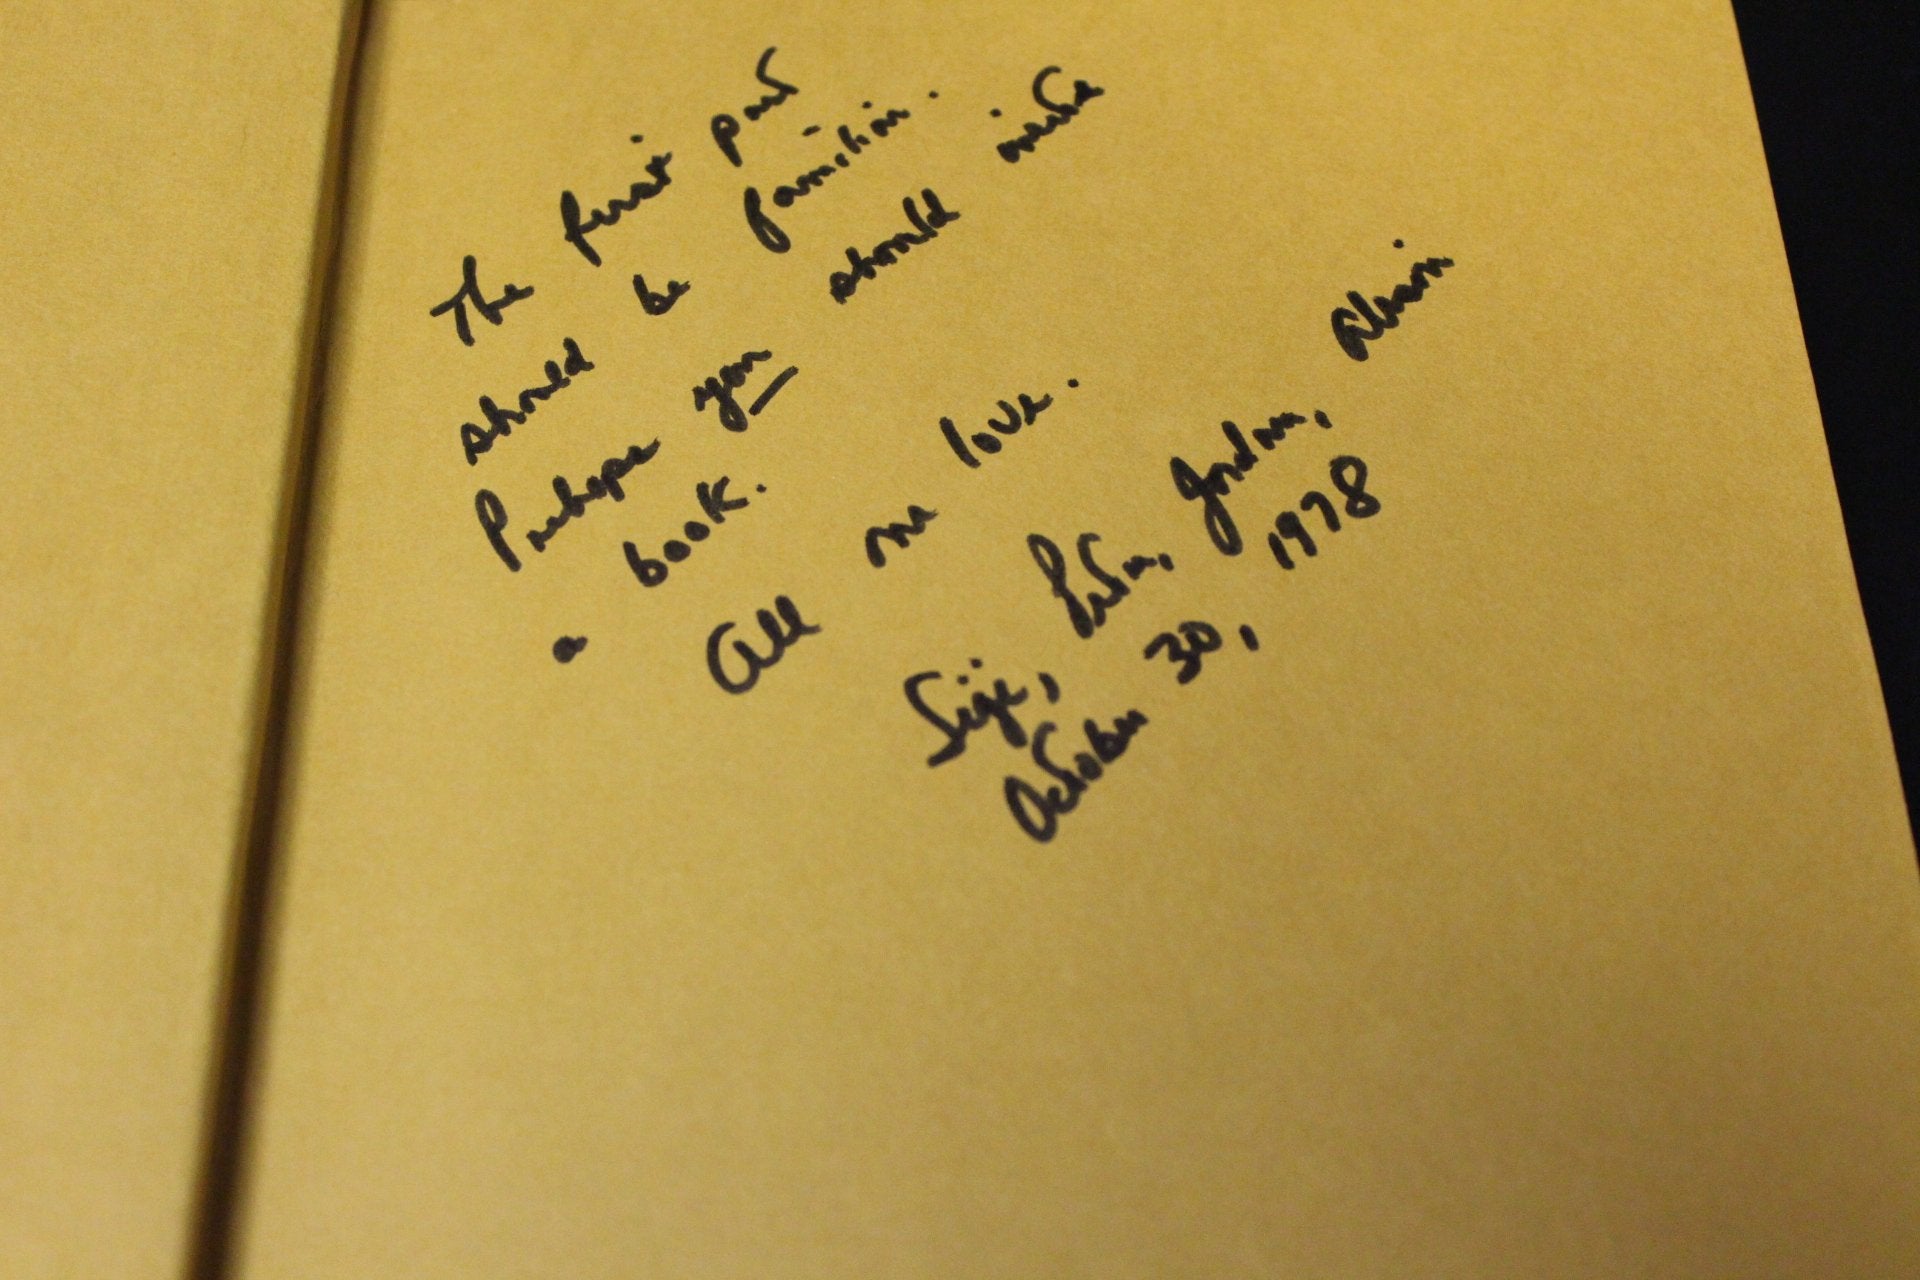 The first part
should be familiar.
Perhaps you should write
a book.
All my love.
Sige, Peter, Jordan, Alvin
October 30, 1978